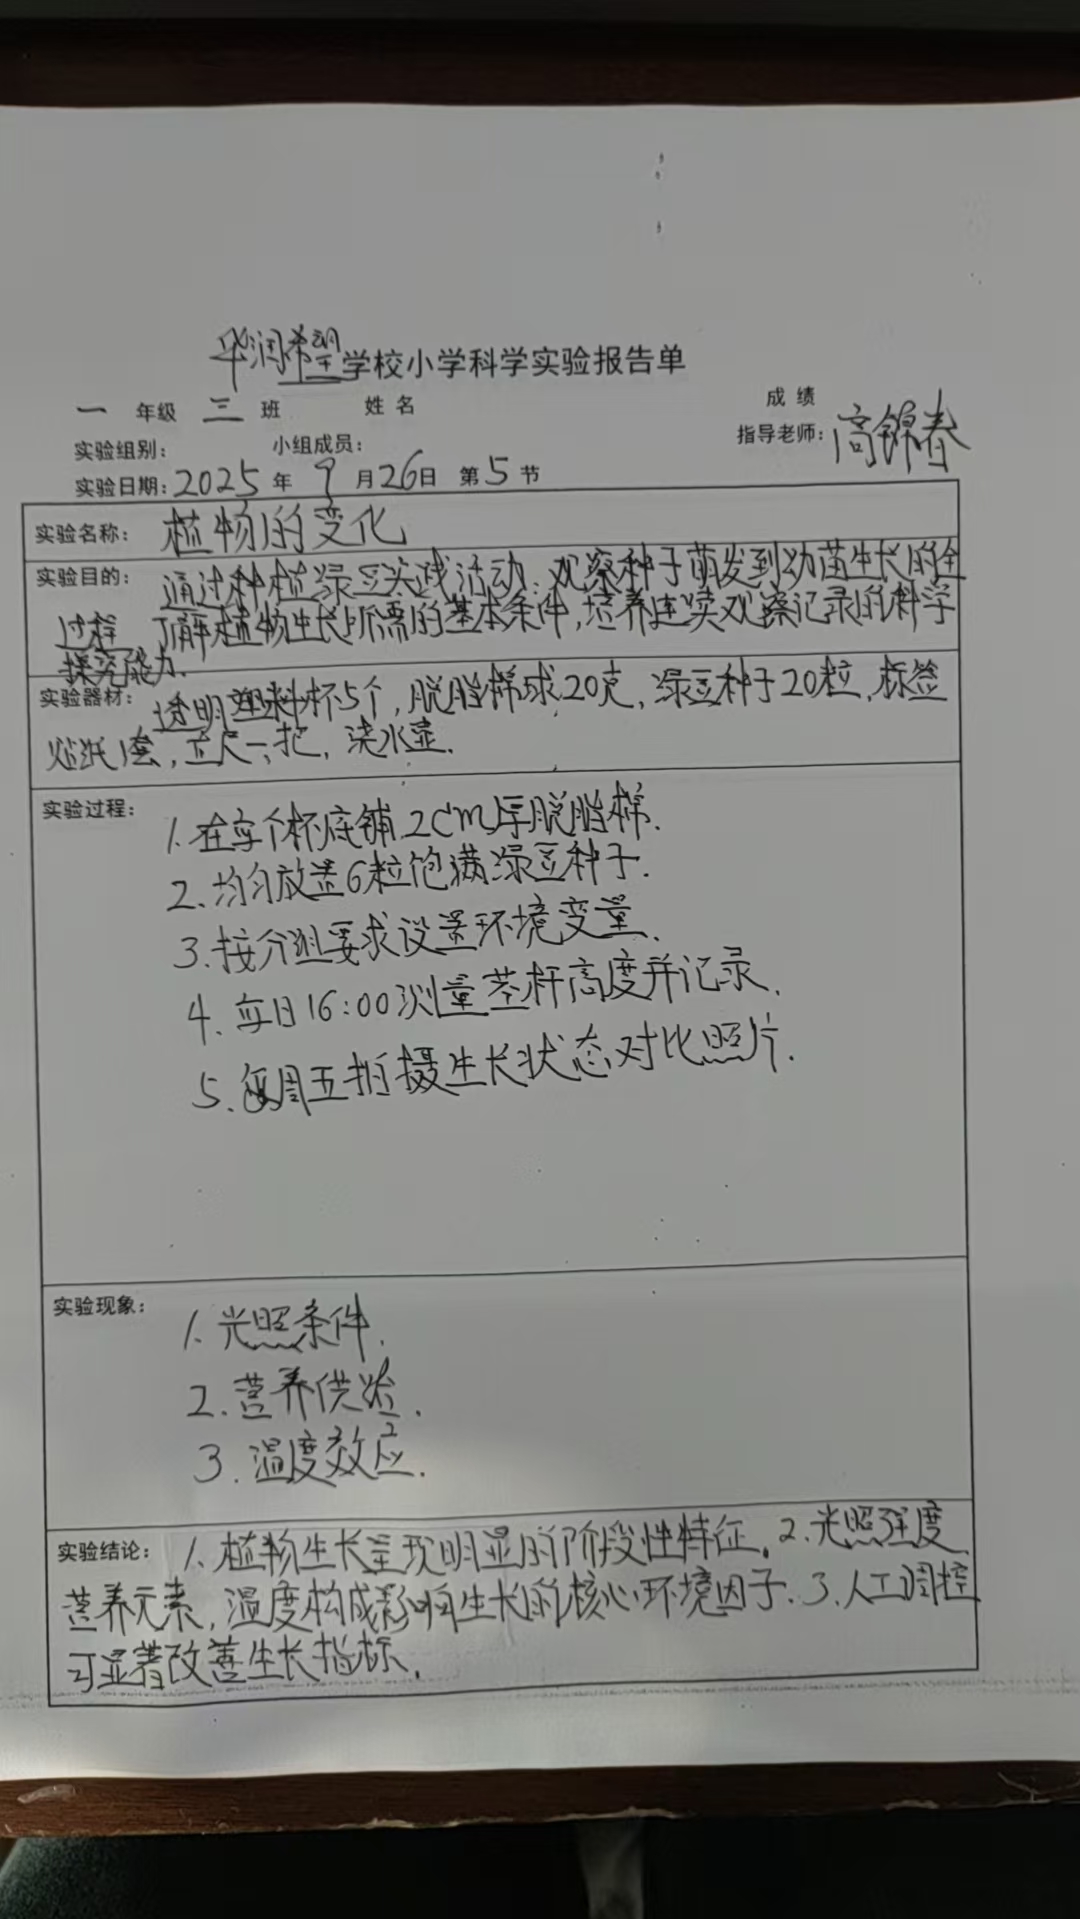 华润希望学校小学科学实验报告单
一 年级 三 班 姓 名 成 绩
实验组别: 小组成员: 指导老师: 高锦春
实验日期: 2025 年 9 月 26日 第 5 节
实验名称: 植物的变化
实验目的: 通过种植绿豆实践活动,观察种子萌发到幼苗生长的全
过程 了解植物生长所需的基本条件,培养连续观察记录的科学
探究能力.
实验器材: 透明塑料杯5个,脱脂棉球20克,绿豆种子20粒,标签
贴纸1套,直尺一把,浇水壶.
实验过程: 1.在每个杯底铺2cm厚脱脂棉.
2.均匀放置6粒饱满绿豆种子.
3.按分组要求设置环境变量.
4.每日16:00测量茎杆高度并记录.
5.每周五拍摄生长状态对比照片.
实验现象: 1.光照条件.
2.营养供给.
3.温度效应.
实验结论: 1.植物生长呈现明显的阶段性特征。2.光照强度
营养元素,温度构成影响生长的核心环境因子.3.人工调控
可显著改善生长指标.